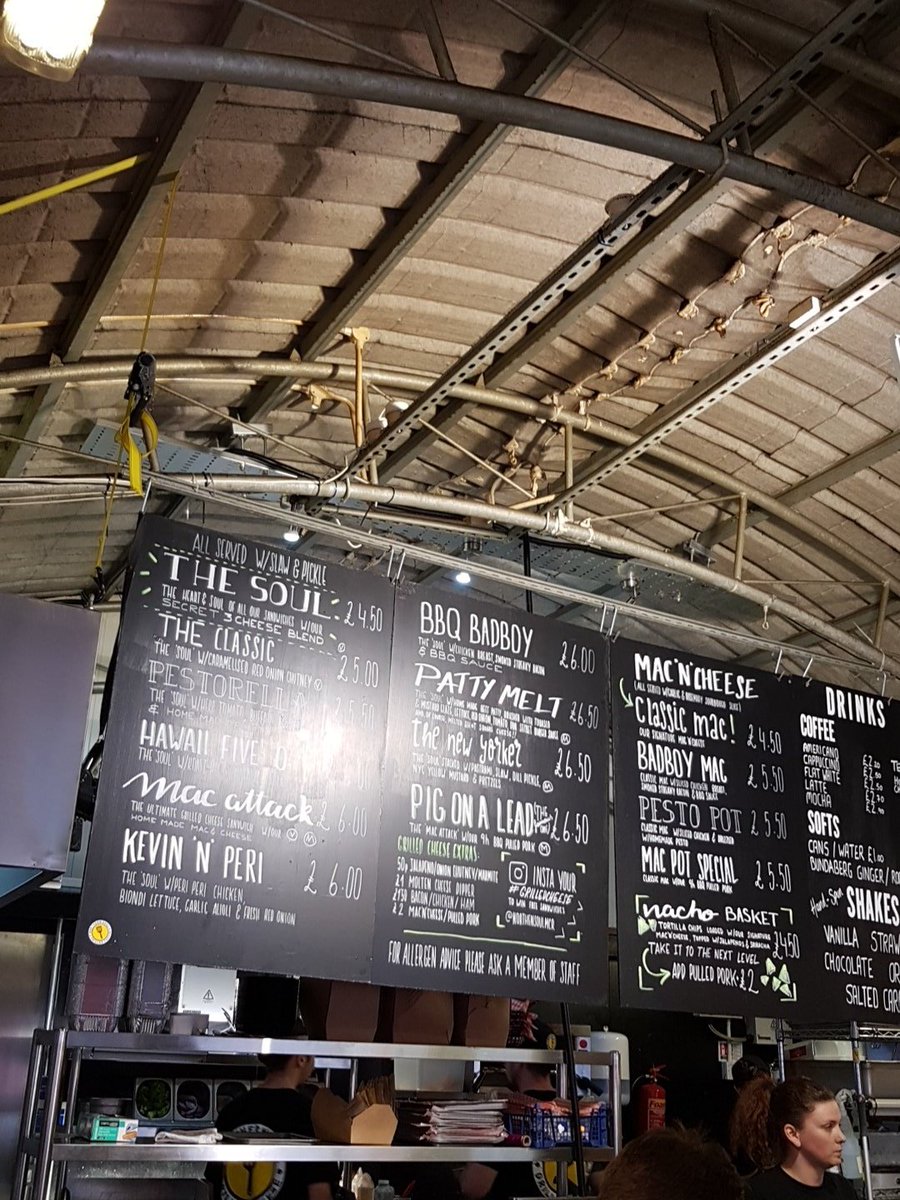 ALL SERVED W/SLAW & PICKLE
THE SOUL £4.50
THE HEART & SOUL OF ALL OUR SANDWICHES W/OUR
SECRET 3 CHEESE BLEND
THE CLASSIC £5.00
THE 'SOUL' W/CARAMELISED RED ONION CHUTNEY
PESTO 5.50
THE 'SOUL' W/
& HOME MA
HAWAII FIVE
THE 'SOUL' W/
mac attack £6.00
THE ULTIMATE GRILLED CHEESE SANDWICH W/OUR
HOME MADE MAC & CHEESE
KEVIN 'N' PERI £6.00
THE 'SOUL' W/PERI PERI CHICKEN,
BIONDI LETTUCE, GARLIC ALIOLI & FRESH RED ONION
BBQ BADBOY £6.00
THE 'SOUL' W/CHICKEN BREAST, SMOKED STREAKY BACON
& BBQ SAUCE
PATTY MELT £6.50
the new yorker £6.50
THE SOUL STACKED W/PASTRAMI, SLAW, DILL PICKLE,
NYC YELLOW MUSTARD & PRETZELS
PIG ON A LEAD £6.50
THE 'MAC ATTACK' W/OUR 9hr BBQ PULLED PORK
GRILLED CHEESE EXTRAS:
50p JALAPENO/ONION CHUTNEY/MARMITE
£1 MOLTEN CHEESE DIPPER
BACON/CHICKEN/HAM
£2 MAC'N'CHEESE/PULLED PORK
INSTA YOUR
#GRILLEDCHEESE
TO WIN FREE SANDWICHES
@NORTHERNSOULMCR
FOR ALLERGEN ADVICE PLEASE ASK A MEMBER OF STAFF
MAC 'N' CHEESE
classic mac! £4.50
OUR SIGNATURE MAC N CHEESE
BADBOY MAC £5.50
CLASSIC MAC W/SLICED CHICKEN BREAST,
SMOKED STREAKY BACON & BBQ SAUCE
PESTO POT £5.50
CLASSIC MAC W/SLICED CHICKEN &
W/HOMEMADE PESTO
MAC POT SPECIAL £5.50
CLASSIC MAC W/OUR 9hr BBQ PULLED PORK
nacho BASKET £4.50
TORTILLA CHIPS LOADED W/OUR SIGNATURE
MAC N CHEESE, TOPPED W/JALAPENOS & SRIRACHA
TAKE IT TO THE NEXT LEVEL
ADD PULLED PORK: £2
DRINKS
COFFEE
AMERICANO
CAPPUCCINO
FLAT WHITE
LATTE
MOCHA
SOFTS
CANS / WATER £1.00
BUNDABERG GINGER /
SHAKES
VANILLA STRAW
CHOCOLATE
SALTED CAR